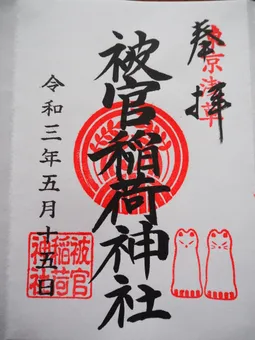 奉拝
東京浅草
被官稲荷神社
令和三年五月十五日
被官
稲荷
神社